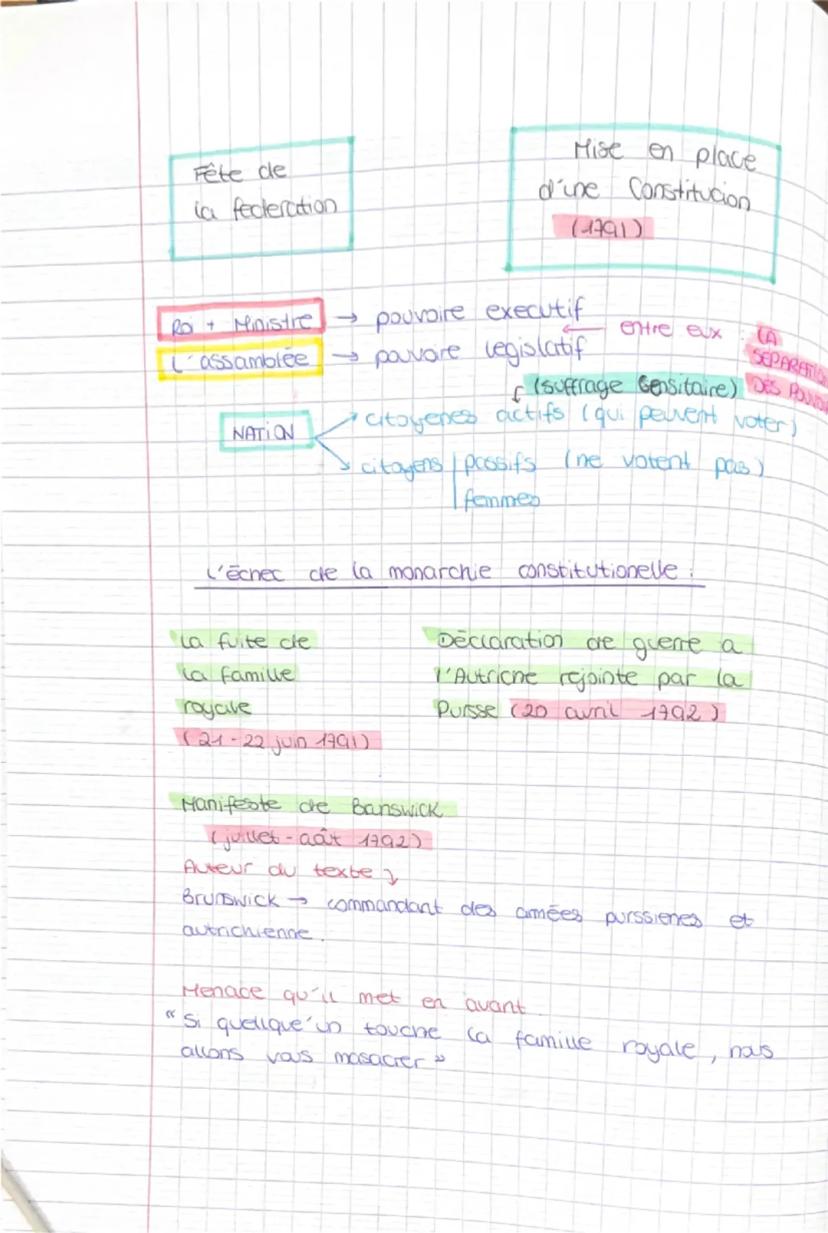 Fête de
la federation
Mise en place
d'une Constitucion
(1791)
Roi + Ministre → pouvoire executif
← entre eux : LA SÉPARATION DES POUVOIRS
L'assamblée → pouvoire legislatif
(suffrage Censitaire)
NATION
citoyenes actifs (qui peuvent voter)
citoyens passifs (ne votent pas)
femmes
L'échec de la monarchie constitutionelle :
La fuite de
la famille
royale
(21-22 juin 1791)
Déclaration de guerre a
l'Autriche rejointe par la
Pursse (20 avril 1792)
Manifeste de Banswick
(juillet-août 1792)
Auteur du texte
Brunswick → commandant des armées purssienes et
autrichienne.
Menace qu'il met en avant
"Si quelique'un touche la famille royale, nous
allons vous masacrer"